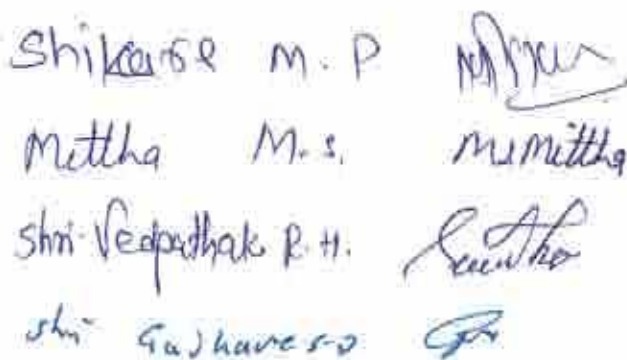 Shikare M. P
Mettha M.S. MSMettha
Shri. Vedpathak R. H.
Shri Gadhave S.D